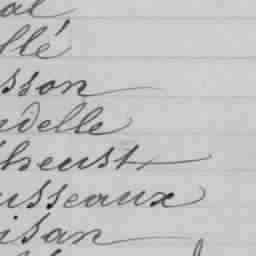 al
llé
sson
delle
heust
usseaux
isan